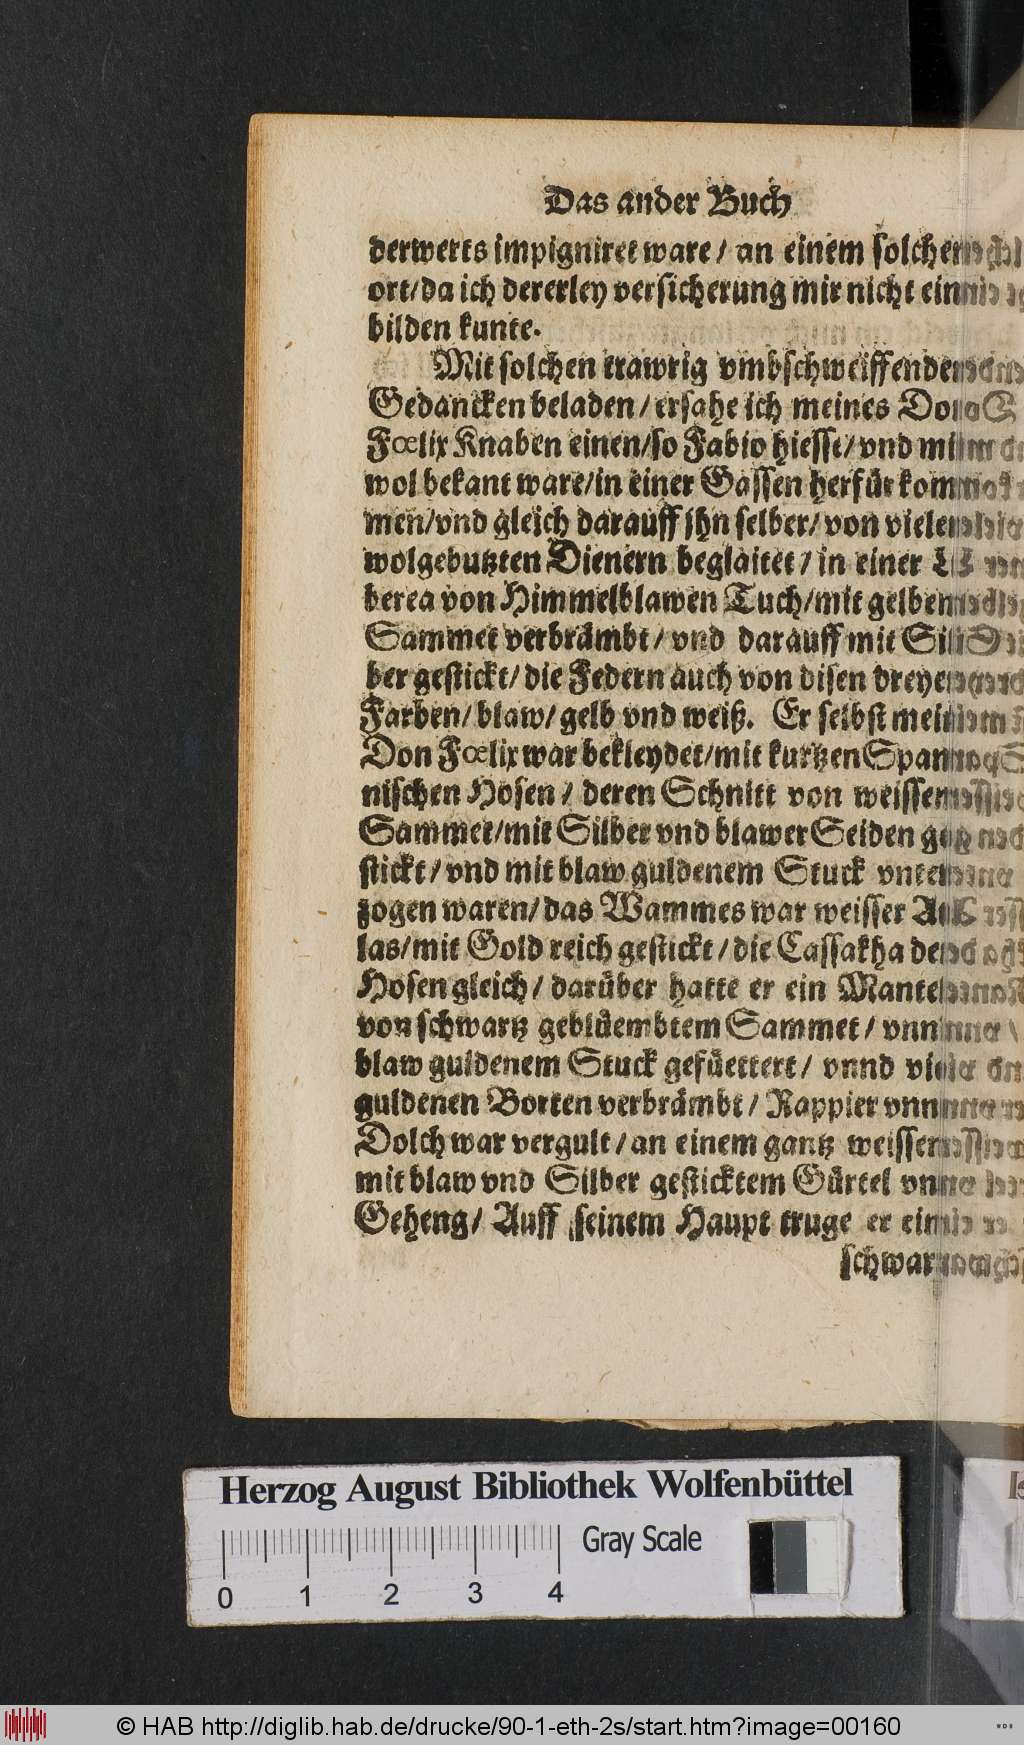 Das ander Buch
derwerts impigniret ware / an einem solchen
ort / da ich dererley versicherung mir nicht ein
bilden kunte.
Mit solchen trawrig vmbschweiffenden
Gedancken beladen / ersahe ich meines Don
Fœlix Knaben einen / so Fabio hiesse / vnd mir
wol bekant ware / in einer Gassen herfür kom
men / vnd gleich darauff jhn selber / von vielen
wolgebutzten Dienern beglaitet / in einer Li
berea von Himmelblawen Tuch / mit gelben
Sammet verbrämbt / vnd darauff mit Sil
ber gestickt / die Federn auch von disen dreyen
Farben / blaw / gelb vnd weiß. Er selbst mein
Don Fœlix war bekleydet / mit kurtzen Span
nischen Hosen / deren Schnitt von weissem
Sammet / mit Silber vnd blawer Seiden ge
stickt / vnd mit blaw guldenem Stuck vnter
zogen waren / das Wammes war weisser At
las / mit Gold reich gestickt / die Cassakha den
Hosen gleich / darüber hatte er ein Mantel
von schwartz geblüembtem Sammet / vnn
blaw guldenem Stuck gefüettert / vnnd viel
guldenen Borten verbrämbt / Rappier vnn
Dolch war vergult / an einem gantz weissen
mit blaw vnd Silber gesticktem Gürtel vnn
Geheng / Auff seinem Haupt truge er ein
schwar
Herzog August Bibliothek Wolfenbüttel
Gray Scale
0 1 2 3 4
© HAB http://diglib.hab.de/drucke/90-1-eth-2s/start.htm?image=00160